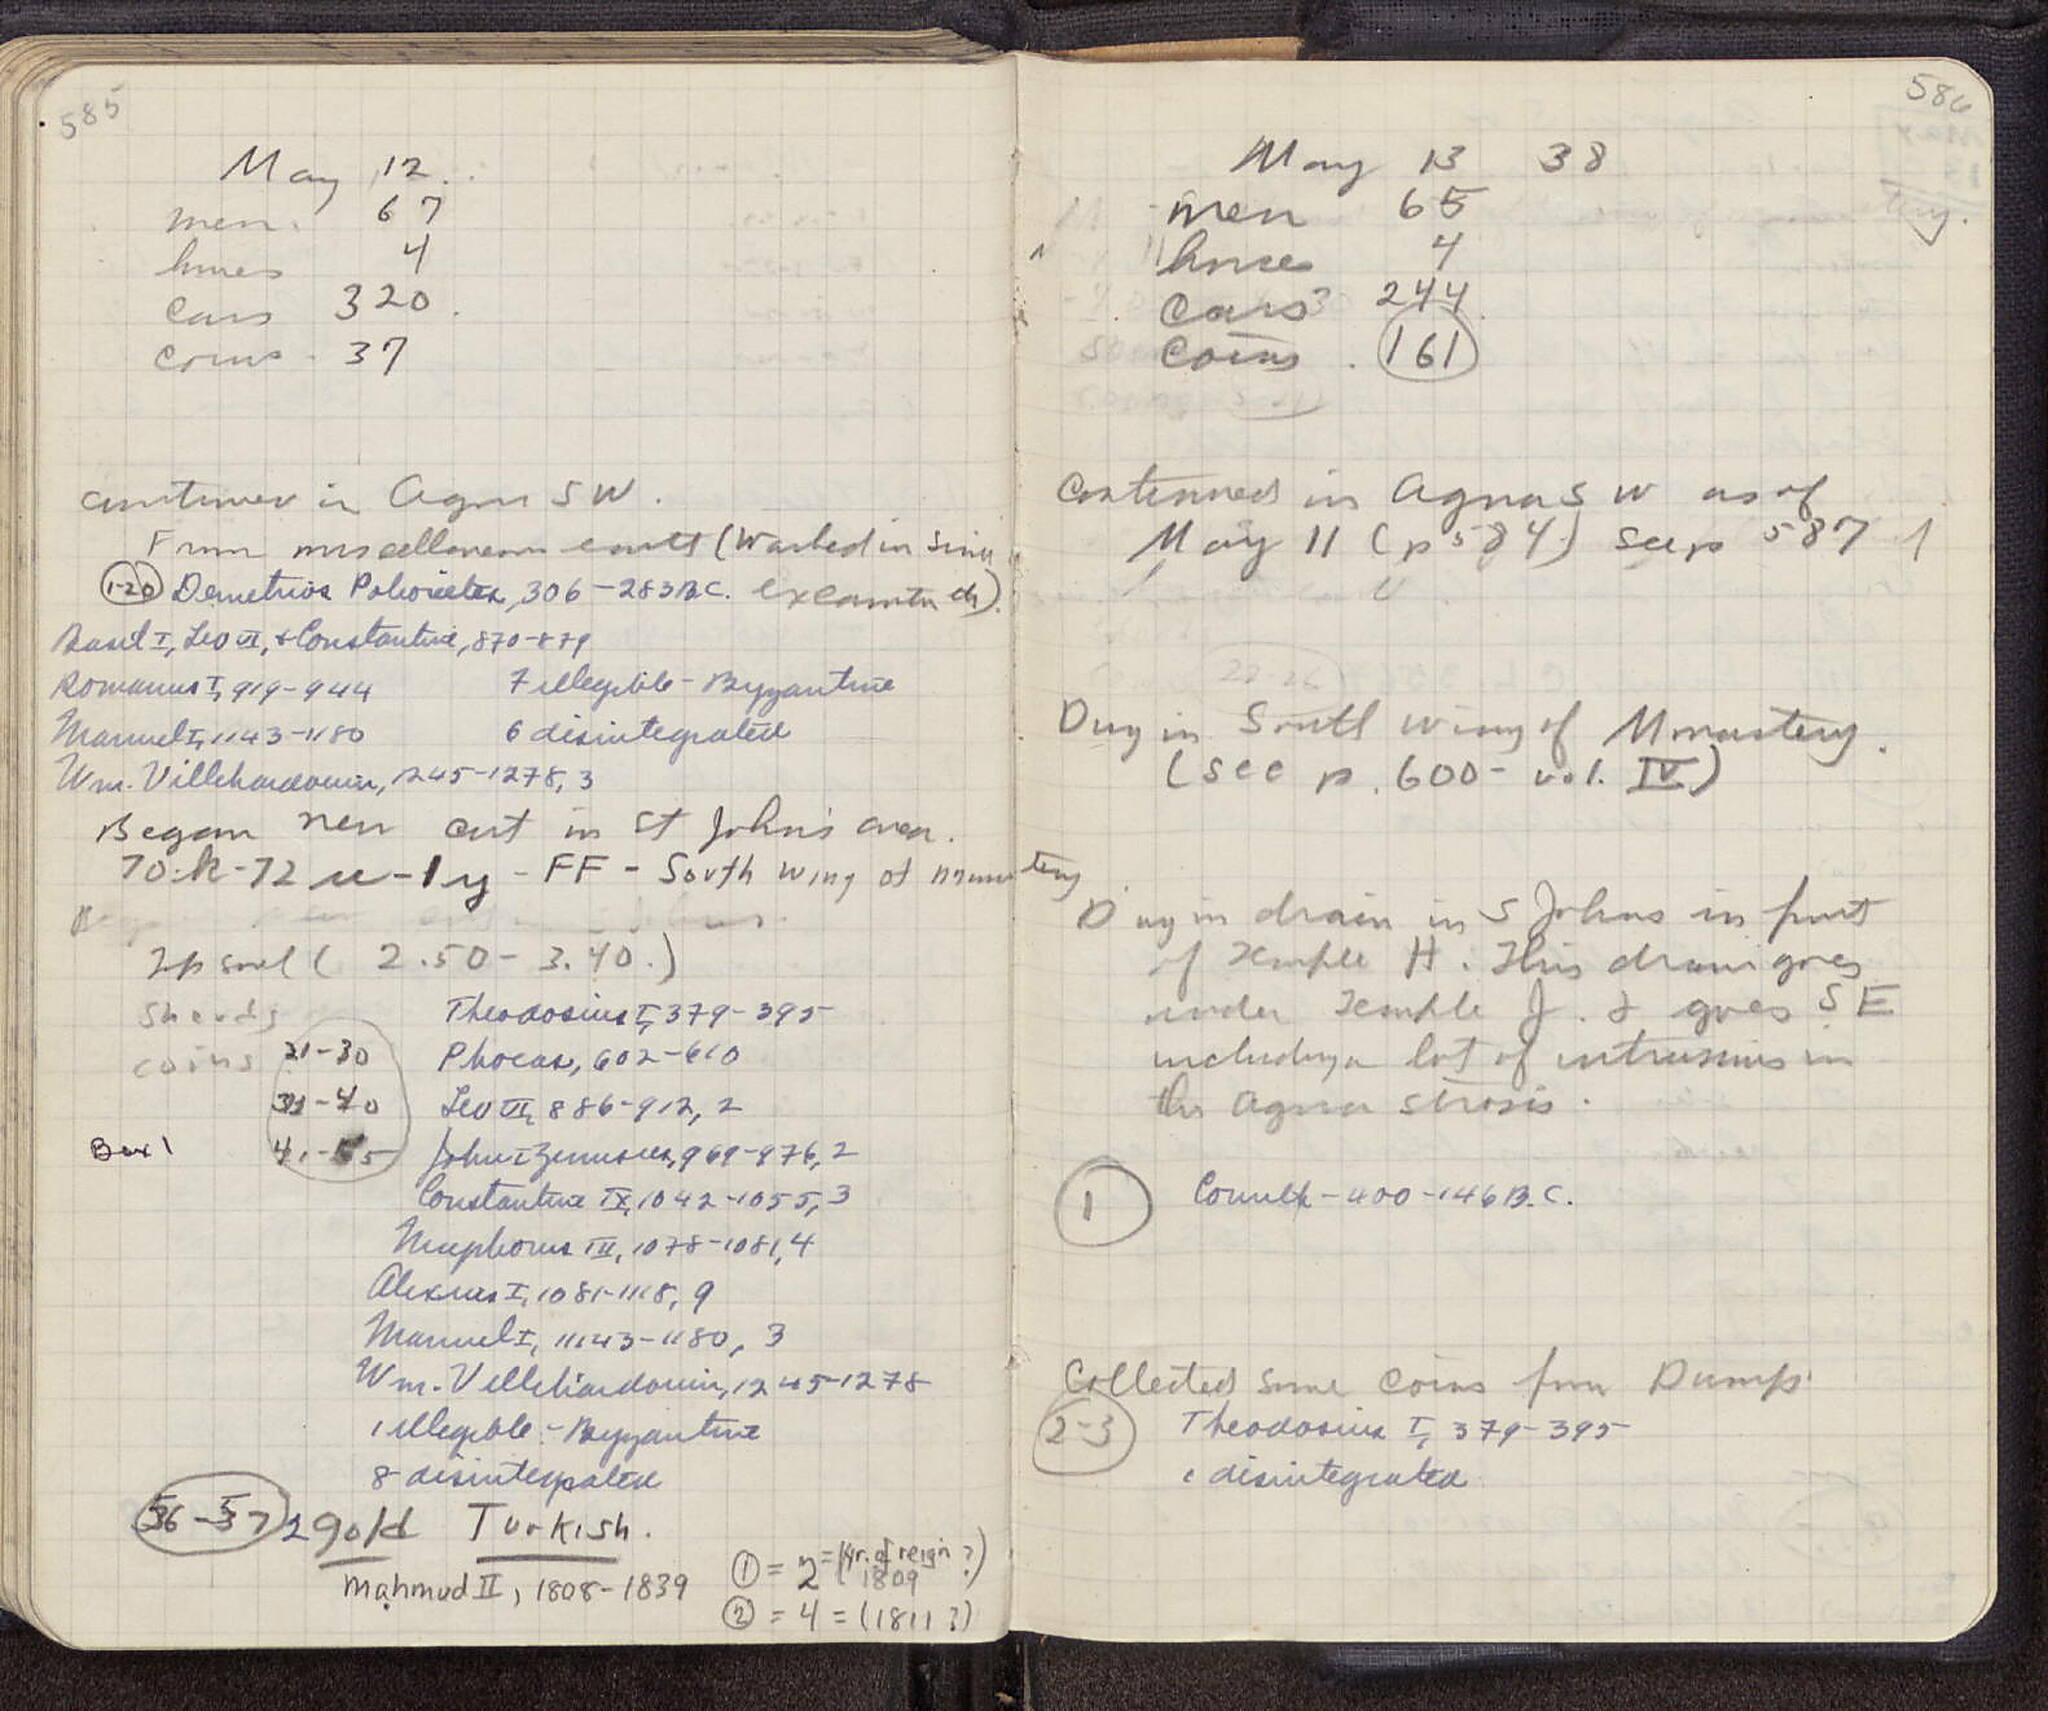 585
May 12.
men. 67
horses 4
Cars 320.
Coins - 37
continued in Agora SW.
From miscellaneous earth (Washed in Since
1-20 Demetrios Poliorcetes, 306-283 B.C. excavated).
Basil I, Leo VI, + Constantine, 870-879
Romanus I, 919-944 7 illegible - Byzantine
Manuel I, 1143-1180 6 disintegrated
Wm. Villehardouin, 1245-1278, 3
Began new cut in St John's area.
70:k-72 u-ly-FF - South wing of monastery
Top soil ( 2.50 - 3.40.)
Sherds Theodosius I, 379-395
coins 21-30 Phocas, 602-610
31-40 Leo VI, 886-912, 2
Box 1 41-55 John I Zimisces, 969-976, 2
Constantine IX, 1042-1055, 3
Nicephorus III, 1078-1081, 4
Alexius I, 1081-1118, 9
Manuel I, 1143-1180, 3
Wm. Villehardouin, 1245-1278
1 illegible - Byzantine
8 disintegrated
56-57 2 gold Turkish.
Mahmud II, 1808-1839
① = 2 = (yr. of reign ?)
1809
② = 4 = (1811 ?)
586
May 13 38
men 65
horses 4
Cars 244
Coins. 161
Continued in Agora S W as of
May 11 (p 584) see p 587
Dug in South wing of Monastery.
(see p. 600 - vol. IV)
Dug in drain in S Johns in front
of Temple H. This drain goes
under Temple J. & goes SE
including a lot of intrusions in
the Agora strosis.
1 Corinth - 400-146 B.C.
Collected some coins from Dump.
2-3 Theodosius I, 379-395
1 disintegrated